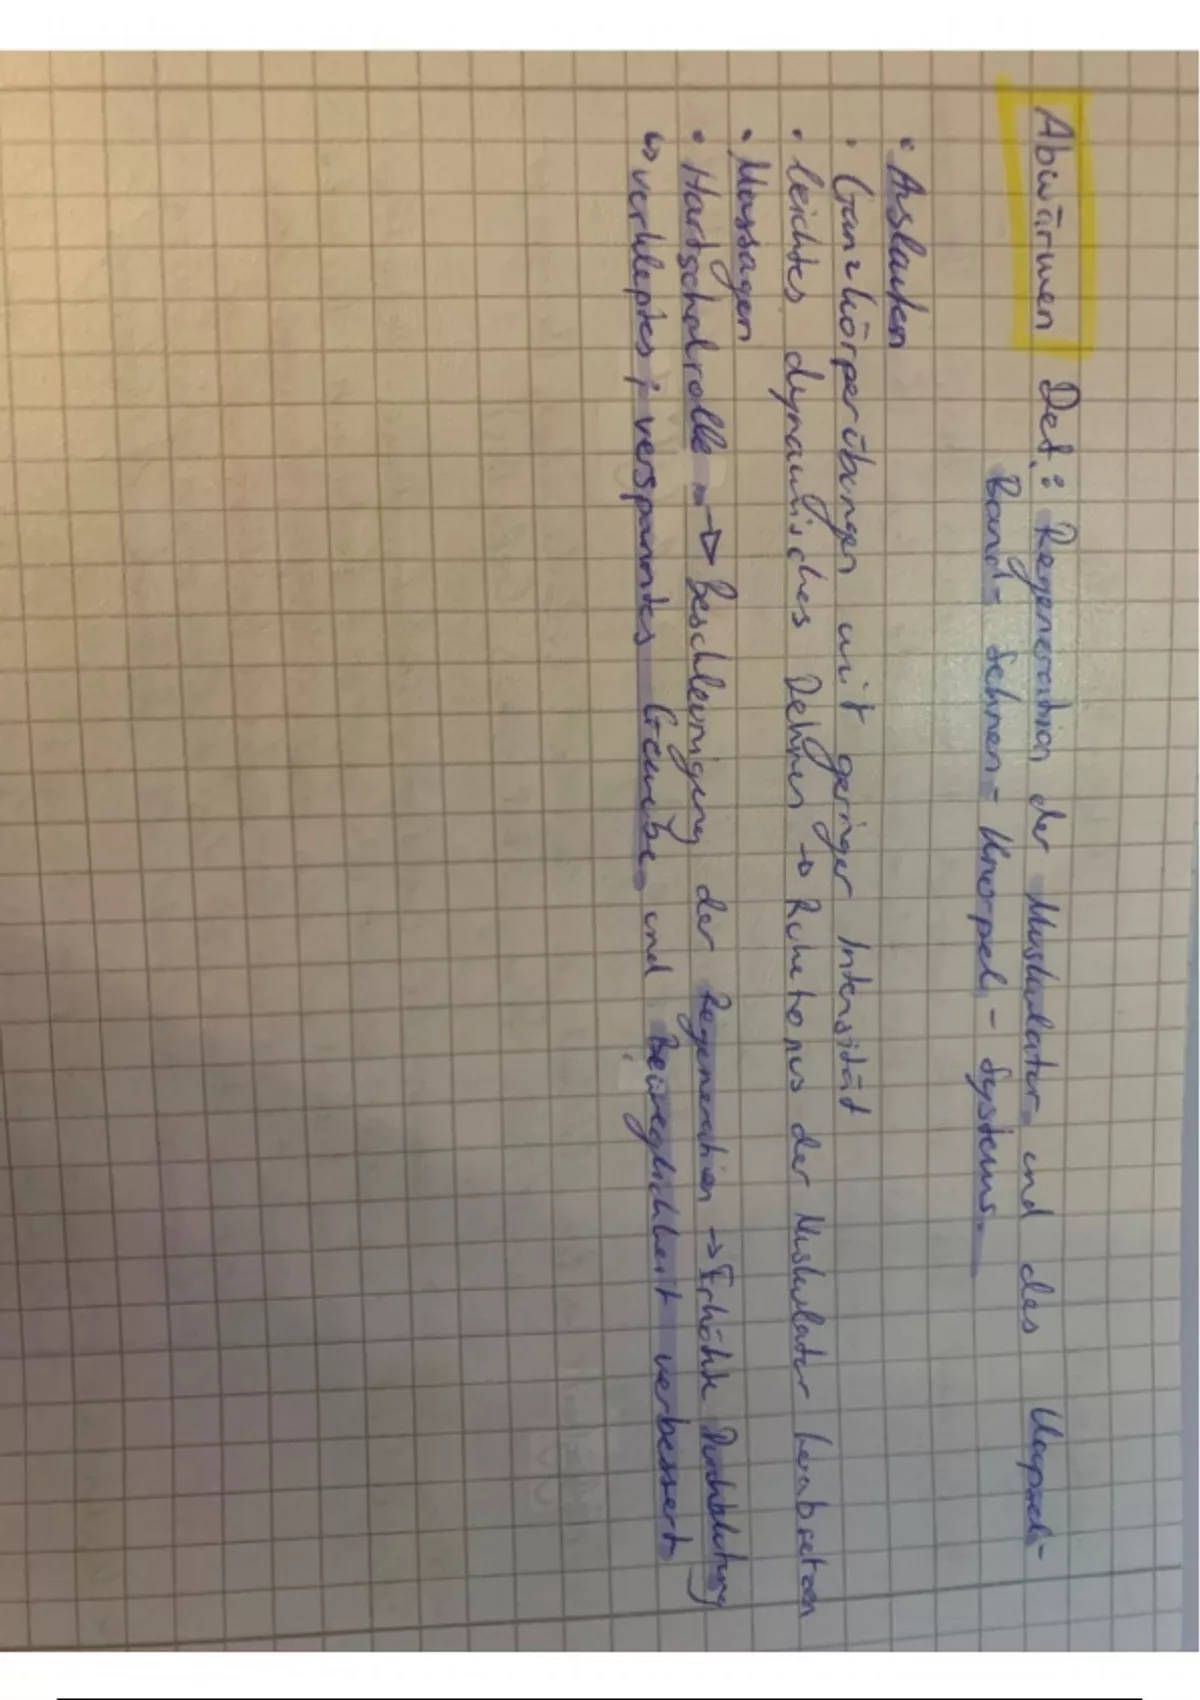 Abwärmen Def.: Regeneration der Muskulatur und des Kapsel-
Band- Sehnen- Knorpel- Systems.
• Auslaufen
• Ganzkörperübungen mit geringer Intensität
• leichtes dynamisches Dehnen → Ruhetonus der Muskulatur herabsetzen
• Massagen
• Hartschalrolle → Beschleunigung der Regeneration → Erhöhte Durchblutung
↳ verklebtes, verspanntes Gewebe und Beweglichkeit verbessert